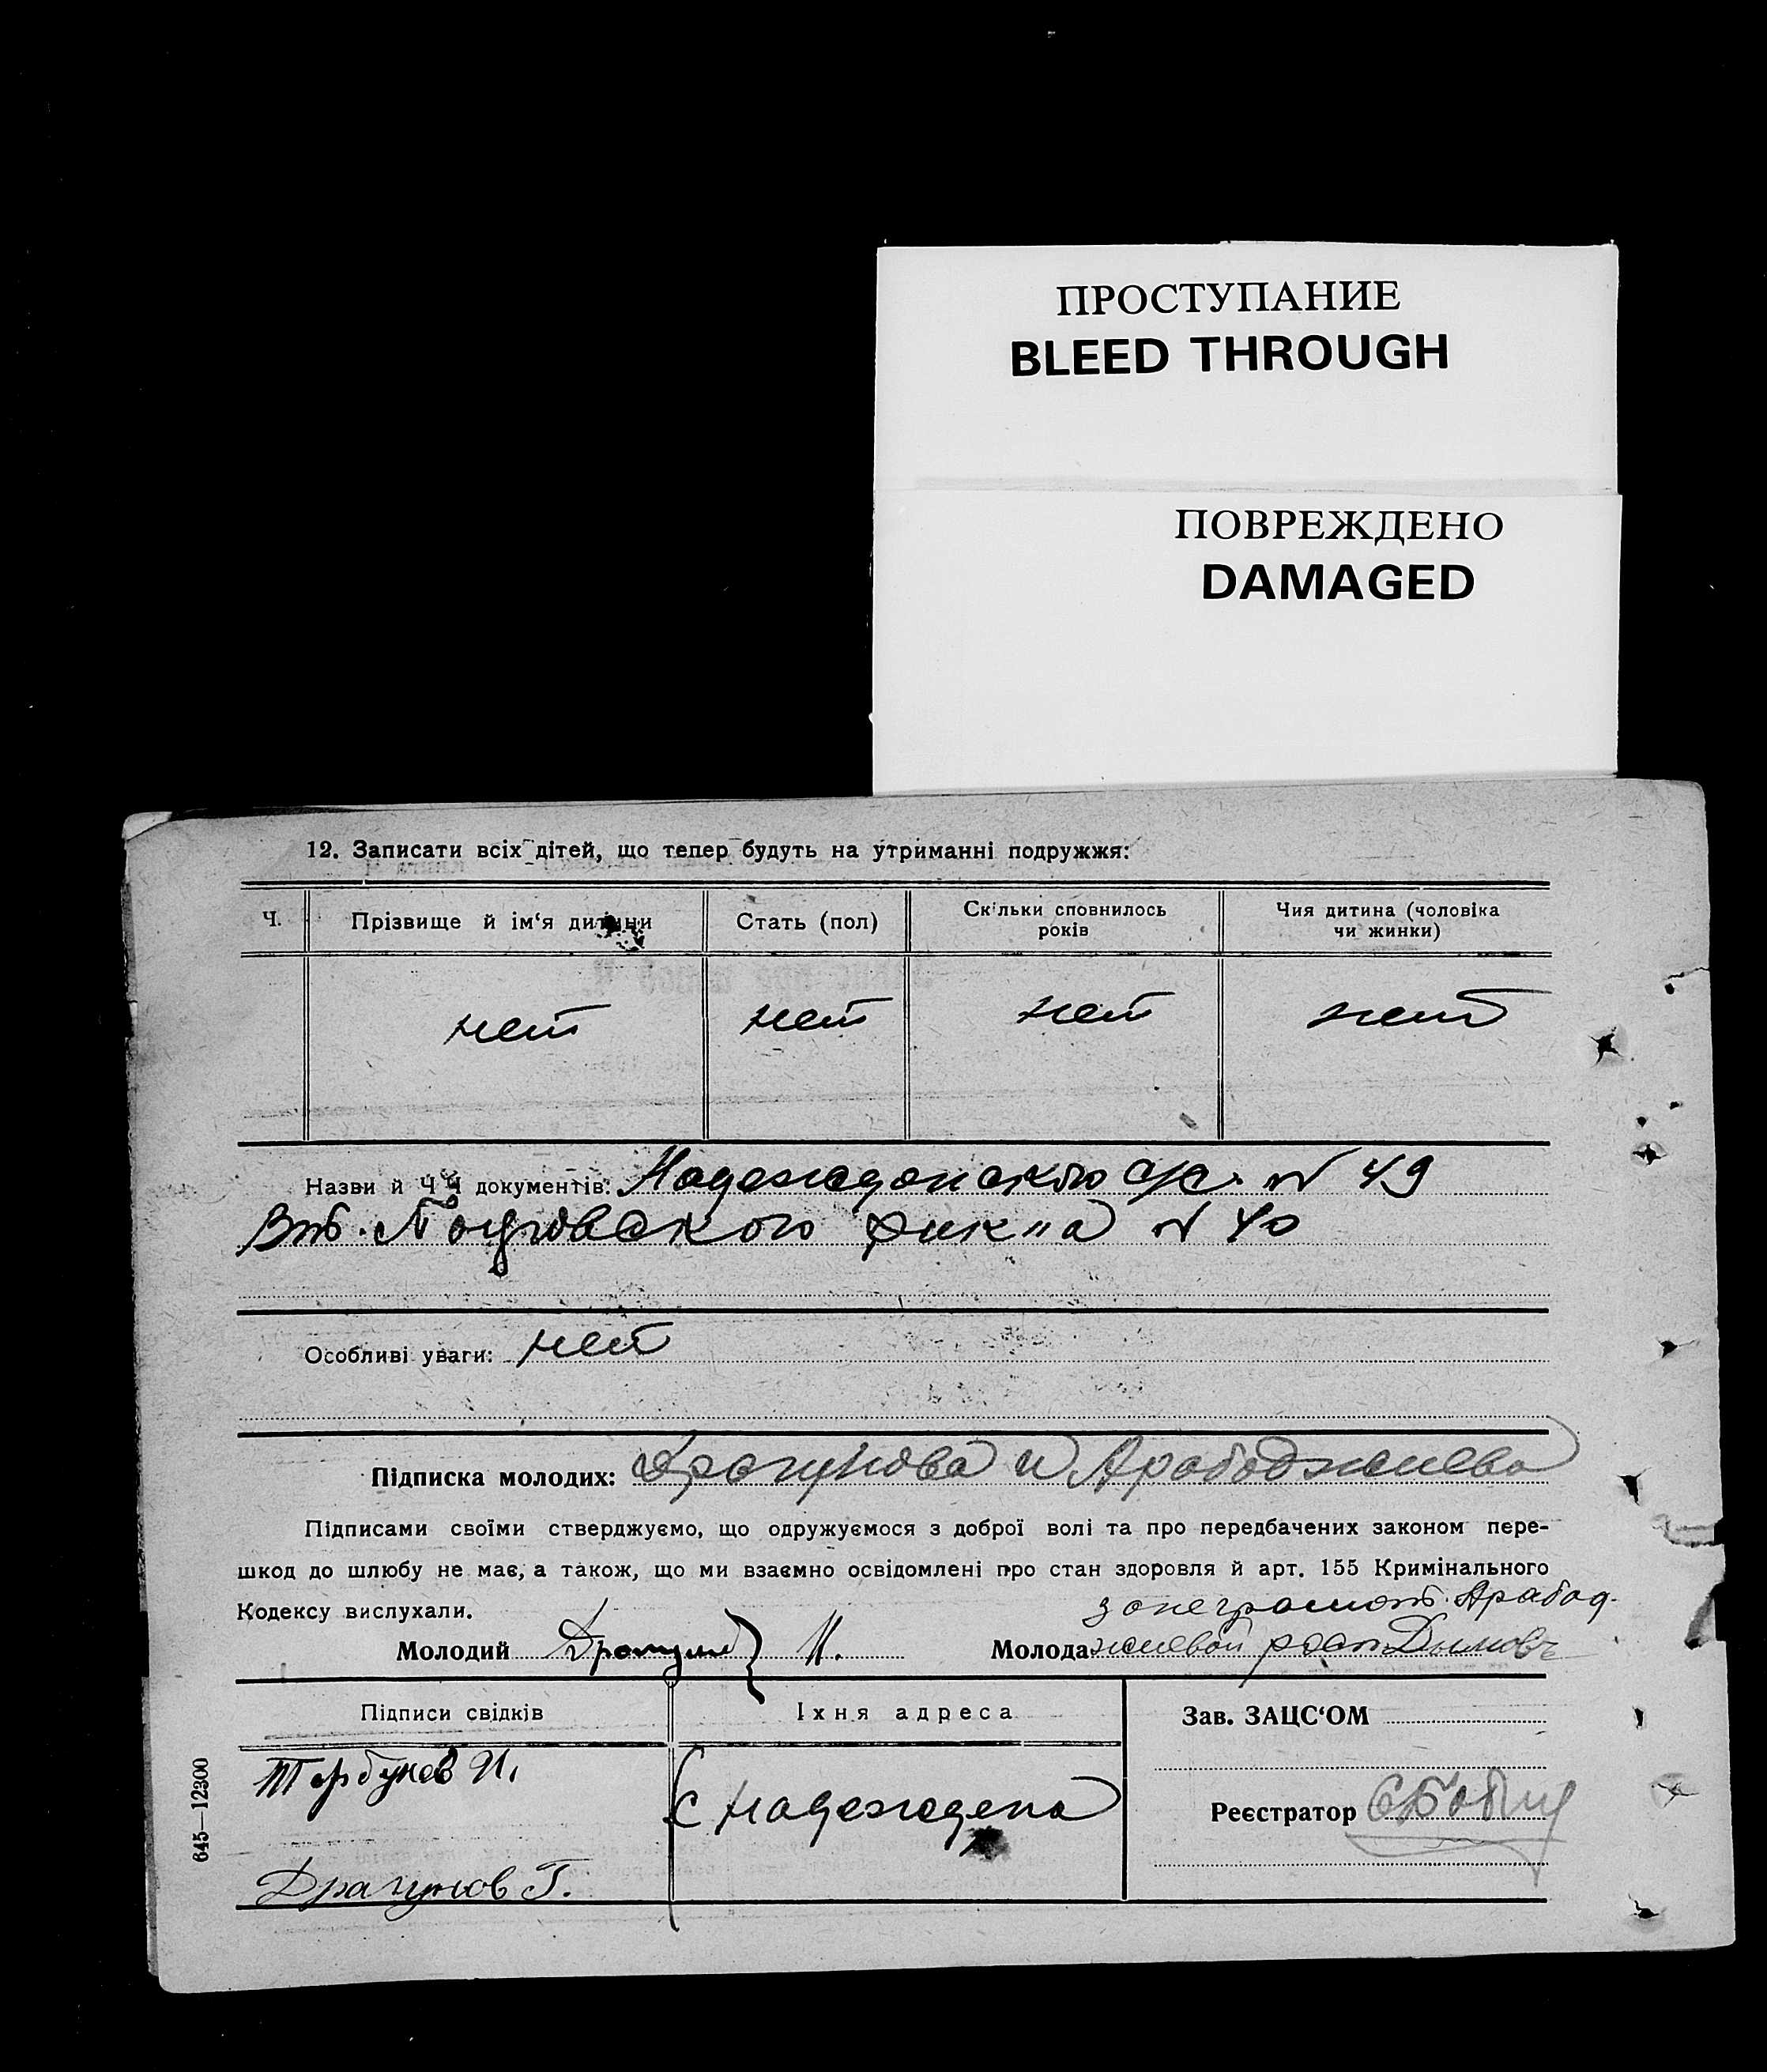 ПРОСТУПАНИЕ
BLEED THROUGH
ПОВРЕЖДЕНО
DAMAGED
12. Записати всіх дітей, що тепер будуть на утриманні подружжя:
Ч. Прізвище й ім‘я дитини Стать (пол) Скільки сповнилось років Чия дитина (чоловіка чи жинки)
нет нет нет нет
Назви й ЧЧ документів: с/с. N 49
N 40
Особливі уваги: нет
Підписка молодих: Драгунова и Арабаджиева
Підписами своїми стверджуємо, що одружуємося з доброї волі та про передбачених законом пере-
шкод до шлюбу не має, а також, що ми взаємно освідомлені про стан здоровля й арт. 155 Кримінального
Кодексу вислухали.
за неграмот. Арабад-
Молодий Драгунов И. Молода жиевой
Підписи свідків Їхня адреса Зав. ЗАЦС‘ОМ
Тарбунов И.
с Надеждена
Реєстратор
Драгунов Г.
645—12300